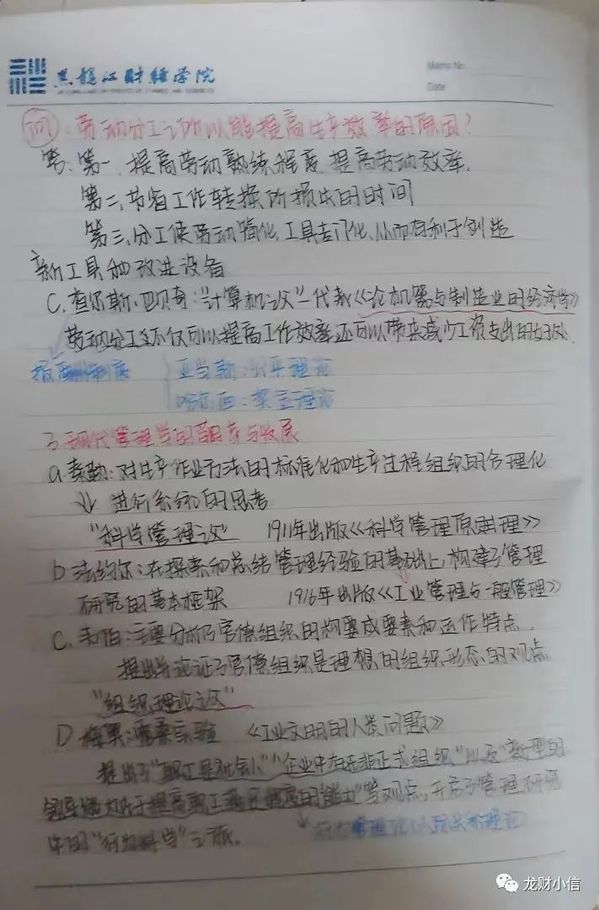 黑龙江财经学院
Memo No.
Date
问：劳动分工之所以能提高生产效率的原因？
答、第一、提高劳动熟练程度 提高劳动效率.
第二、节省工作转换所损失的时间
第三、分工使劳动简化,工具专门化,从而有利于创造
新工具和改进设备
C. 查尔斯·巴贝奇："计算机之父"-代表《论机器与制造业的经济学》
劳动分工不仅可以提高工作效率还可以带来减少工资支出的好处.
报酬制度
亚当斯：公平理论
3 现代管理学的形成与发展
a 泰勒：对生产作业方法的标准化和生产过程组织的合理化
进行系统的思考
"科学管理之父" 1911年出版《科学管理原理》
b 法约尔：在探索和总结管理经验的基础上,构建了管理
研究的基本框架 1916年出版《工业管理与一般管理》
C. 韦伯：主要分析了官僚组织的构成要素和运作特点
提出并论证了官僚组织是理想的组织形态的观点
"组织理论之父"
D 梅奥：霍桑实验 《工业文明的人类问题》
提出了"职工是社会人""企业中存在非正式组织"以及"新型的
领导能力在于提高职工满足程度的能力"等观点,开启了管理研究
中的"行为科学"之旅.
龙财小信